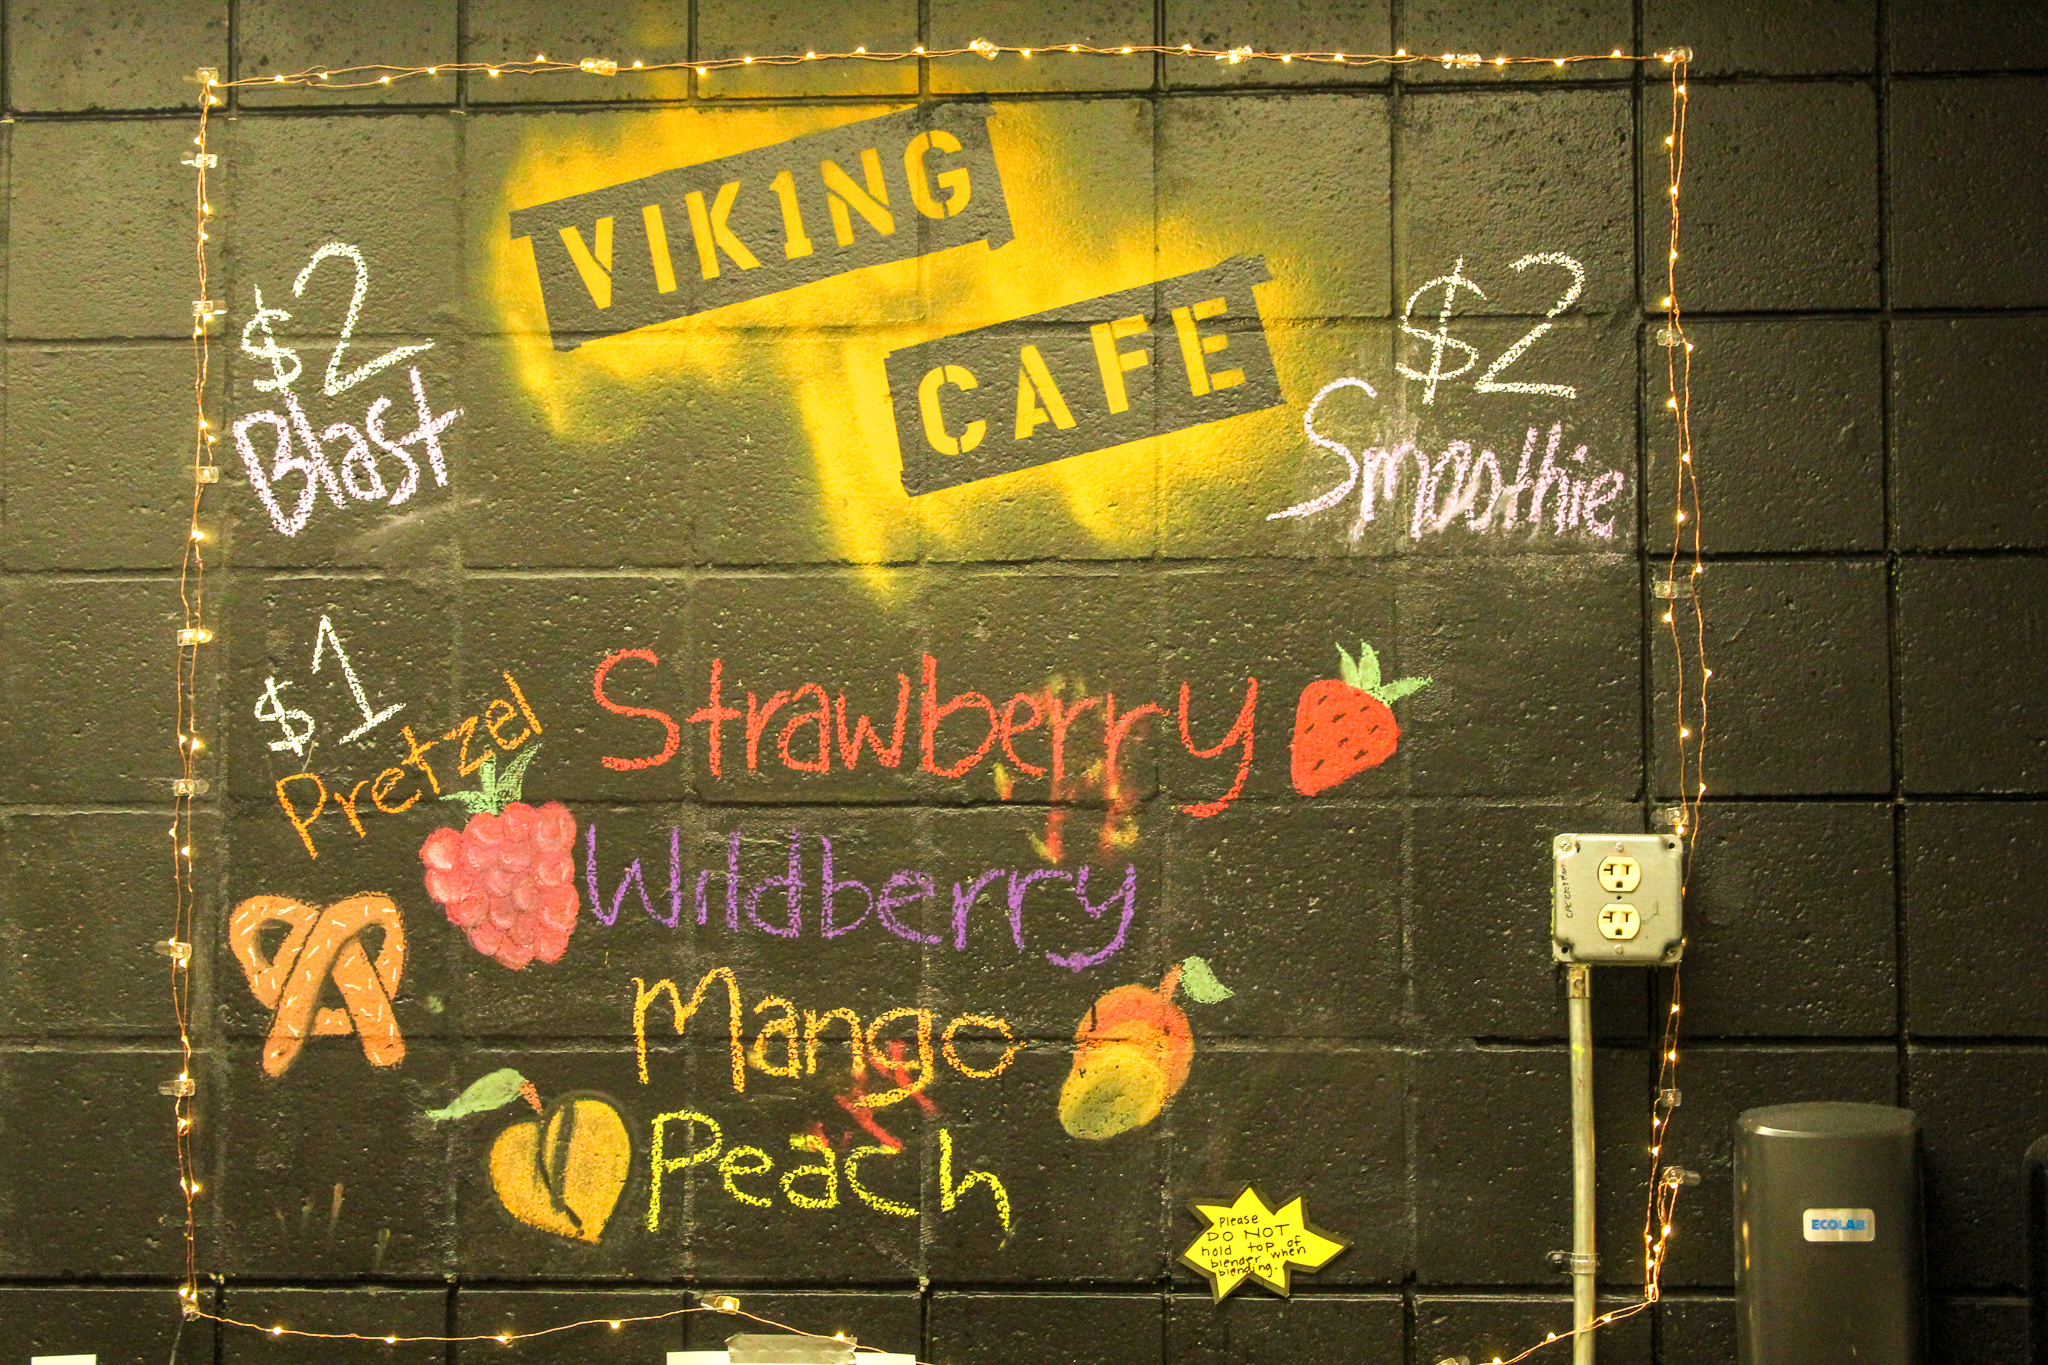 VIK1NG
CAFE
$2
Blast
$2
Smoothie
$1
Pretzel
Strawberry
Wildberry
Mango
Peach
Please
DO NOT
hold top of
blender when
blending.
ECOLAB